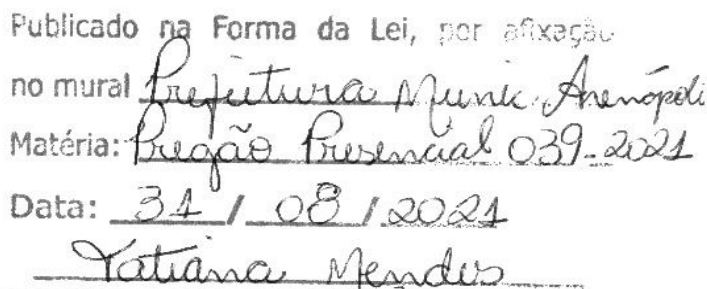 Publicado na Forma da Lei, por afixação
no mural Prefeitura Munic. Arenópoli
Matéria: Pregão Presencial 039-2021
Data: 31 / 08 / 2021
Tatiana Mendes